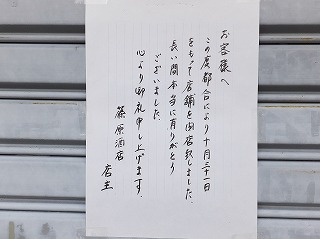 お客様へ
この度都合により十月三十一日
をもって店舗を閉店致しました。
長い間本当に有りがとう
ございました。
心より御礼申し上げます。
篠原酒店
店主